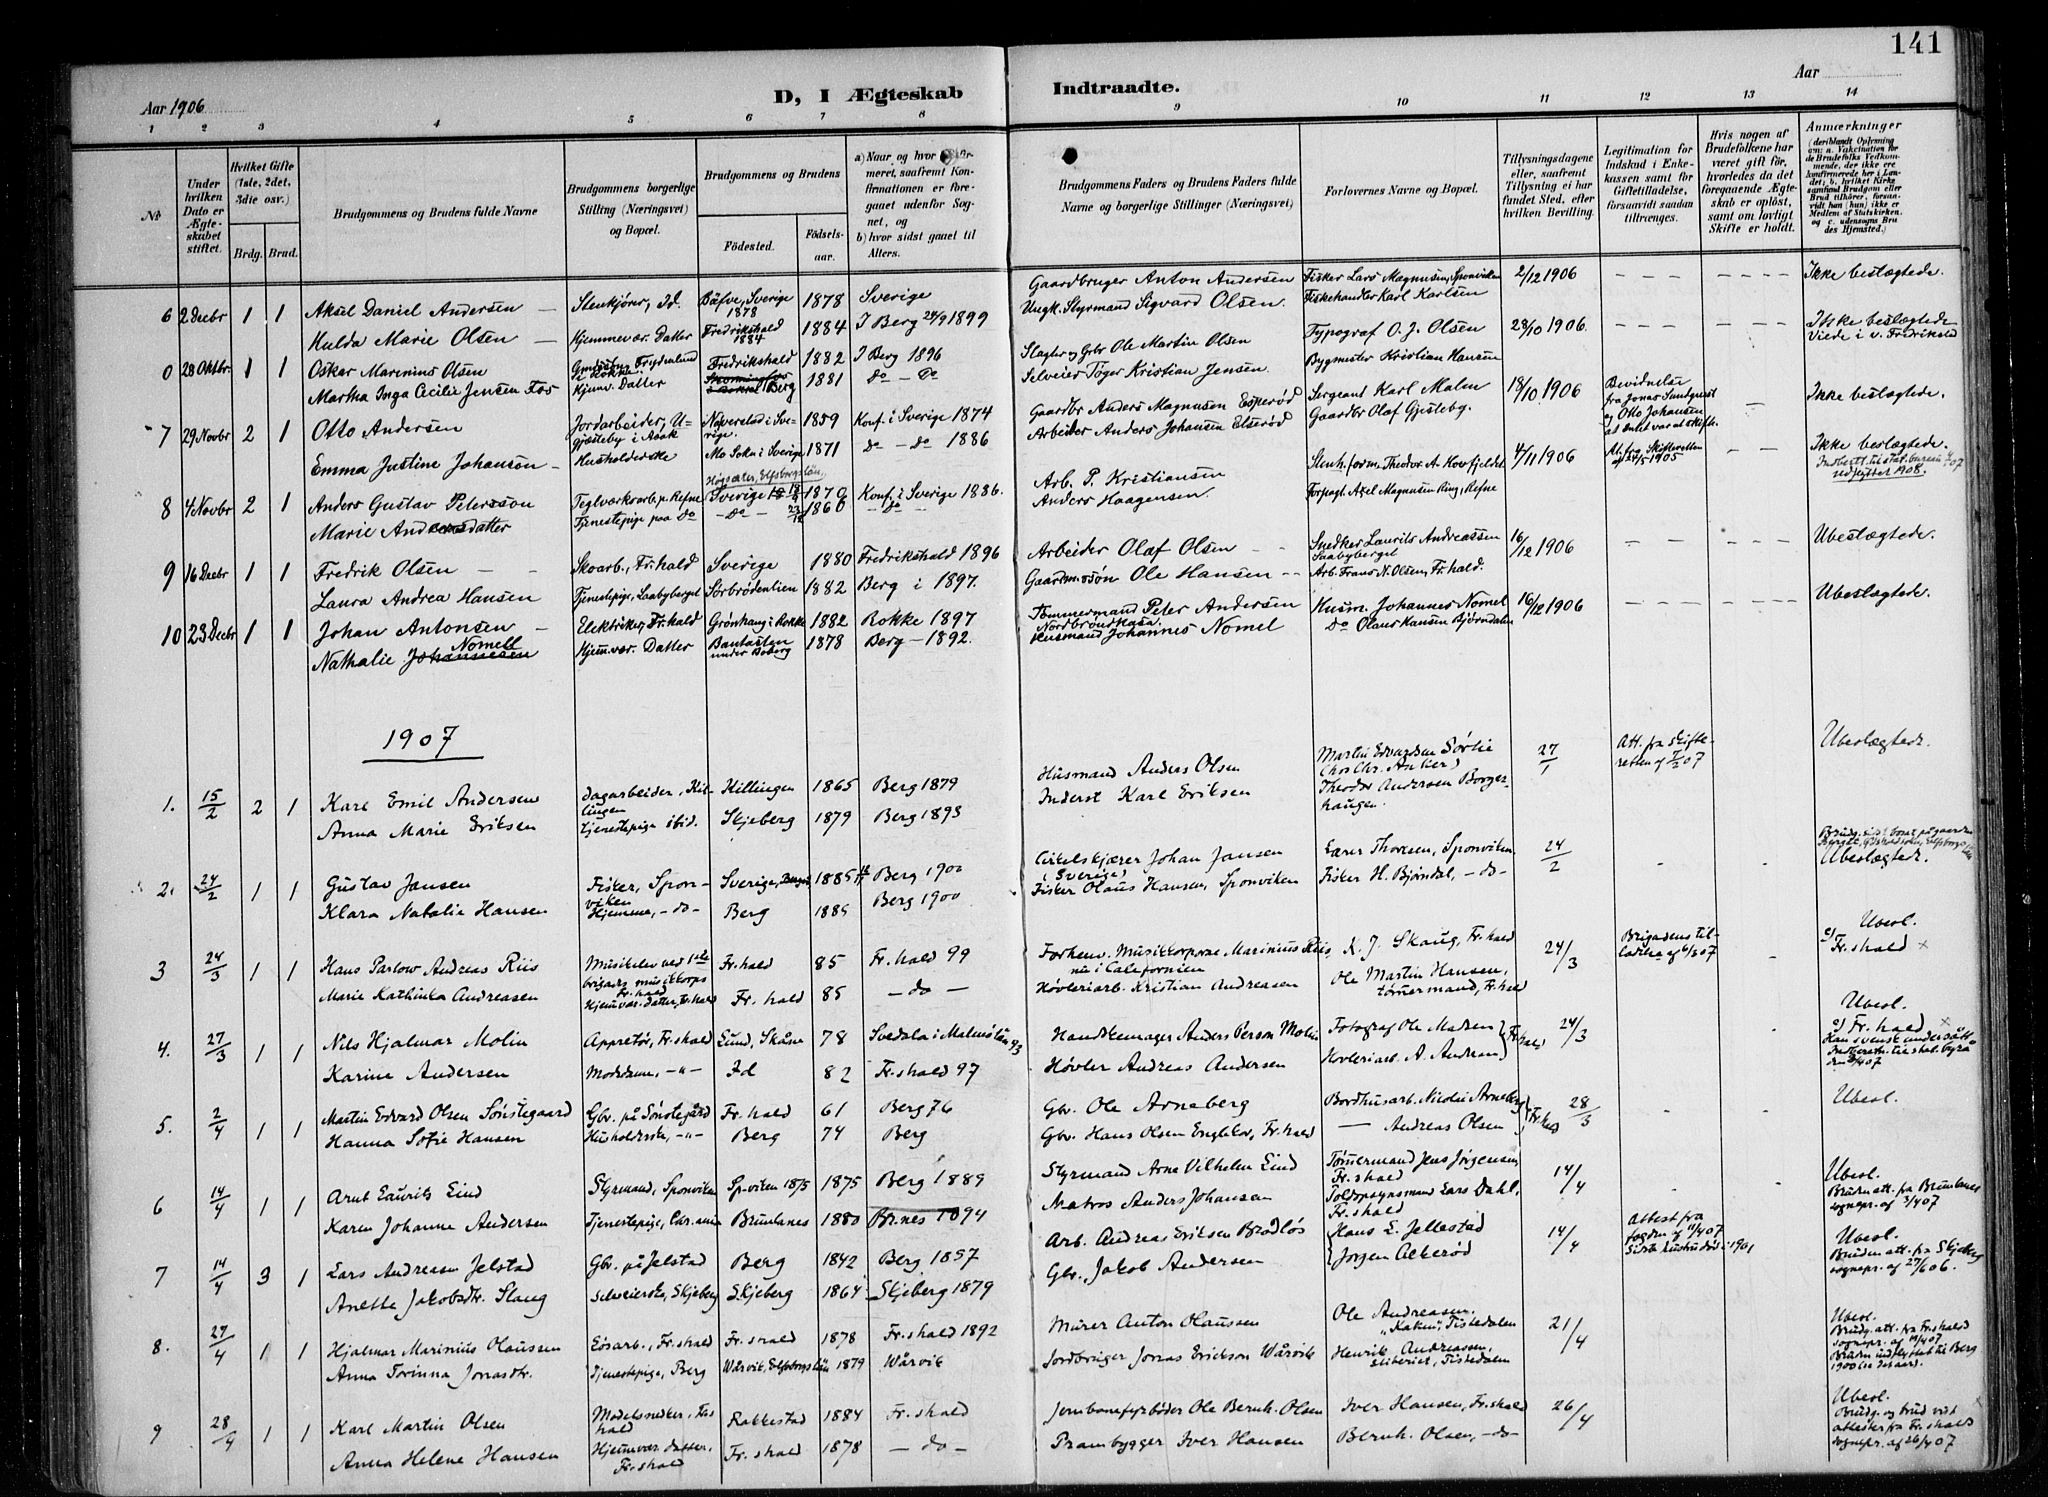 141
Aar 1906
D, I Ægteskab Indtraadte.
Aar
1 2 3 4 5 6 7 8 9 10 11 12 13 14
№
Under hvilken Dato er Ægteskabet stiftet.
Hvilket Gifte (1ste, 2det, 3die osv.)
Brdg. Brud.
Brudgommens og Brudens fulde Navne
Brudgommens borgerlige Stilling (Næringsvei) og Bopæl.
Brudgommens og Brudens
Födested. Födselsaar.
a) Naar og hvor konfirmeret, saafremt Konfirmationen er foregaaet udenfor Sognet, og b) hvor sidst gaaet til Alters.
Brudgommens Faders og Brudens Faders fulde Navne og borgerlige Stillinger (Næringsvei)
Forlovernes Navne og Bopæl.
Tillysningsdagene eller, saafremt Tillysning ei har fundet Sted, efter hvilken Bevilling.
Legitimation for Indskud i Enkekassen samt for Giftetilladelse, forsaavidt saadan tiltrænges.
Hvis nogen af Brudefolkene har været gift för, hvorledes da det foregaaende Ægteskab er oplöst, samt om lovligt Skifte er holdt.
Anmærkninger (deriblandt Oplysning om: a. Vakcination for de Brudefolks Vedkommende, der ikke ere konfirmerede her i Landet; b. hvilket Kirkesamfund Brudgom eller Brud tilhörer, forsaavidt han (hun) ikke er Medlem af Statskirken og c. udensogns Brudes Hjemsted.)
6 2 Decbr 1 1 Aksel Daniel Andersen Stenhjører, Id. Bäfve, Sverige 1878 1878 Sverige Gaardbruger Anton Andersen Fisker Lars Magnusen, Sponviken 2/12 1906 Ikke beslægtede.
Hulda Marie Olsen Hjemmevær. Datter Fredrikshald 1884 1884 I Berg 24/9 1899 Ungk. Styrmand Sigvard Olsen. Fiskehandler Karl Karlsen
0 28 Oktbr. 1 1 Oskar Marinius Olsen Fredrikshald 1882 I Berg 1896 Slagter og Gbr Ole Martin Olsen Typograf O. J. Olsen 28/10 1906. Ikke beslægtede Viede i v. Fredrikstad
Martha Inga Cecilie Jensen Fos Hjemv. Datter Berg 1881 Do - Do Selveier Töger Kristian Jensen Bygmester Kristian Hansen
7 29 Novbr 2 1 Otto Andersen Jordarbeider, Ugjesteby i Aaak Naverstad i Sverige. 1859 Konf. i Sverige 1874 Gaardbr Anders Magnusen Esperød Sergeant Karl Malm 18/10 1906 Bevidnelse fra Jonas Sundqvist og Otto Johansen at intet var at skifte Ikke beslægtede.
Emma Justine Johansen Husholderske Mo Sokn i Sverige 1871 do - do 1886 Arbeider Anders Johansen Elserød Gaardbr Olaf Gjesteby.
8 4 Novbr 2 1 Anders Gustav Petersson Teglverksarb. p. Refne Sverige 1870 Konf. i Sverige 1886. Arb. P. Kristiansen Stenh. form. Theodor A. Hovfjeldet 4/11 1906 At. fra Skifteretten af 24/5 1905 Ikke beslægtede.
Marie Andersdatter Tjenestepige paa Do Do 1860 Do Anders Haagensen Forpagt. Axel Magnusen Ring, Refne
9 16 Decbr 1 1 Fredrik Olsen Skoarb., Fr.hald Sverige 1880 Fredrikshald 1896 Arbeider Olaf Olsen Snedker Laurits Andreassen Saabyberget 16/12 1906 Ubeslægtede.
Laura Andrea Hansen Tjenestepige, Saabyberget Sørbrødenlien 1882 Berg i 1897. Gaardm.søn Ole Hansen Arb. Frans N. Olsen, Fr.hald.
10 23 Decbr 1 1 Johan Antonsen Elektriker, Fr.hald Grønhaug i Rokke 1882 Rokke 1897 Tømmermand Peter Andersen Nordbröndhasa. Husm. Johannes Nomel 16/12 1906 Ubeslægtede.
Nathalie Johannesen Nomell Hjem.vær. Datter 1878 Berg - 1892. Husmand Johannes Nomel Do Olaus Hansen Bjørndalen
1907
1. 15/2 2 1 Karl Emil Andersen Dagarbeider, Killingen Killingen 1865 Berg 1879 Husmand Anders Olsen Martin Edvardsen Sørlie (hos Chr. Anker) 27/1 Att. fra skifteretten af 7/2 07 Ubeslægtede.
Anna Marie Eriksen tjenestepige ibid. Skjeberg 1879 Berg 1893 Inderst Karl Eriksen Theodor Andersen Borgerhaugen.
2. 24/2 1 1 Gustav Jansen Fisker, Sponviken Sverige 1885 Berg 1900 Cirkelskjærer Johan Jansen (Sverige) Lærer Thoresen, Sponviken 24/2 Ubeslægted.
Klara Natalie Hansen Hjemme, -do- Berg 1885 Berg 1900 Fisker Olaus Hansen, Sponviken Fisker H. Bjørndal, -do-
3 24/3 1 1 Hans Parlow Andreas Riis Musikelev ved 1ste brigades musikkorps Fr.hald Fr.hald 85 Fr.hald 99 Forhenv. Musikkorporal Marinius Riis nu i Californien K. J. Skaug, Fr.hald 24/3 Brigadens tilladelse af 6/3 07 Ubesl. c) Fr.hald
Marie Kathinka Andreasen Hjemvær. datter, Fr.hald Fr.hald 85 -do- Høvleriarb. Kristian Andreasen Ole Martin Hansen, tømmermand, Fr.hald
4. 27/3 1 1 Nils Hjalmar Molin Appretør, Fr.hald Lund, Skåne 78 Svedala i Malmø län 93 Handskemager Anders Person Molin Fotograf Ole Madsen Fr.hald 24/3 Ubesl. c) Fr.hald
Karine Andersen Modedame, -"- Id 82 Fr.shald 97 Høvler Andreas Andersen Hovleriarb. A. Andreasen Han svensk undersått
5. 2/4 1 1 Martin Edvard Olsen Sønstegaard Gbr. på Sønstegård Fr.hald 61 Berg 76 Gbr. Ole Arneberg Bordhusarb. Nicolai Arneberg Fr.hald 28/3 Ubesl.
Hanna Sofie Hansen Husholderske, -"- Berg 74 Berg Gbr. Hans Olsen Englekor, Fr.hald Andreas Olsen
6 14/4 1 1 Arnt Laurits Lind Styrmand, Sponviken Sp.viken 1875 1875 Berg 1889 Styrmand Arne Vilhelm Lind Tømmermand Jens Jørgensen, Fr.shald 14/4 Ubesl. Bruden att. fra Brunlanes sognepr. af 3/4 07
Karen Johanne Andersen Tjenestepige, Brunlanes 1880 Br.nes 1894 Matros Anders Johansen Toldopsynsmand Lars Dahl, Fr.shald
7 14/4 3 1 Lars Andreasen Jelstad Gbr. på Jelstad Berg 1842 Berg 1857 Arb. Andreas Eriksen Brødløs Hans L. Jellestad 14/4 Attest fra fogden af 11/4 07 Sidste hustru død i 1901 Ubesl. Bruden att. fra Skjeberg sognepr. af 27/6 06.
Anette Jakobsdtr. Slaug Selveierske, Skjeberg Skjeberg 1864 Skjeberg 1879 Gbr. Jakob Andersen Jørgen Akerød
8. 27/4 1 1 Hjalmar Marinius Olaussen Løsarb., Fr.shald Fr.shald 1878 Fr.shald 1892 Murer Anton Olaussen Ole Andreasen, "Kaken", Tistedalen 21/4 Ubesl. Brudg. att. fra Fr.shald sognepr. af 19/4 07
Anna Torinna Jonasdtr. Tjenestepige, Berg Wårvik, Elfsborgslän 1879 Wårvik Jordbruger Jonas Erickson Wårvik Henrik Andreassen, sliberiet, Tistedalen Bruden indflyttet til Berg 1900
9 28/4 1 1 Karl Martin Olsen Modelsnedker, Fr.shald Rakkestad 1884 Fr.shald Jernbanefyrbøder Ole Bernh. Olsen Iver Hansen, Fr.shald 26/4 Ubesl. Brudg. og brud vist attester fra Fr.shald sognepr. af 26/4 07
Anna Helene Hansen Hjemvær. datter, Fr.shald Fr.shald 1878 -do- Prambygger Iver Hansen Bernh. Olsen, -do-